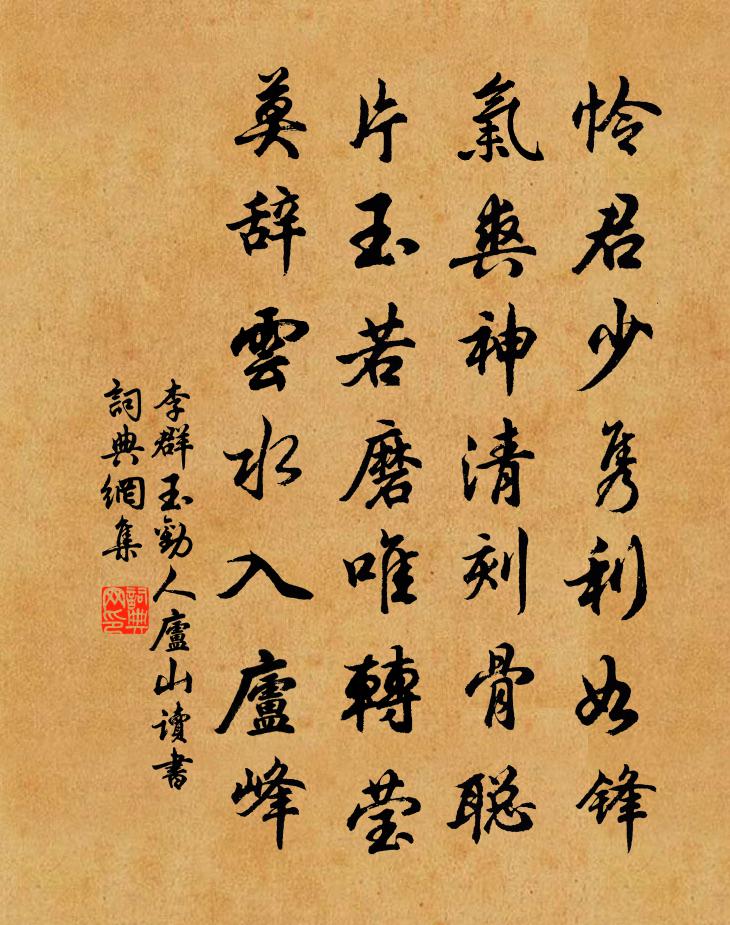 怜君少隽利如锋
氣爽神清刻骨聪
片玉若磨唯轉莹
莫辞雲水入廬峰
李群玉勸人廬山讀書
詞典網集
詞典
网印